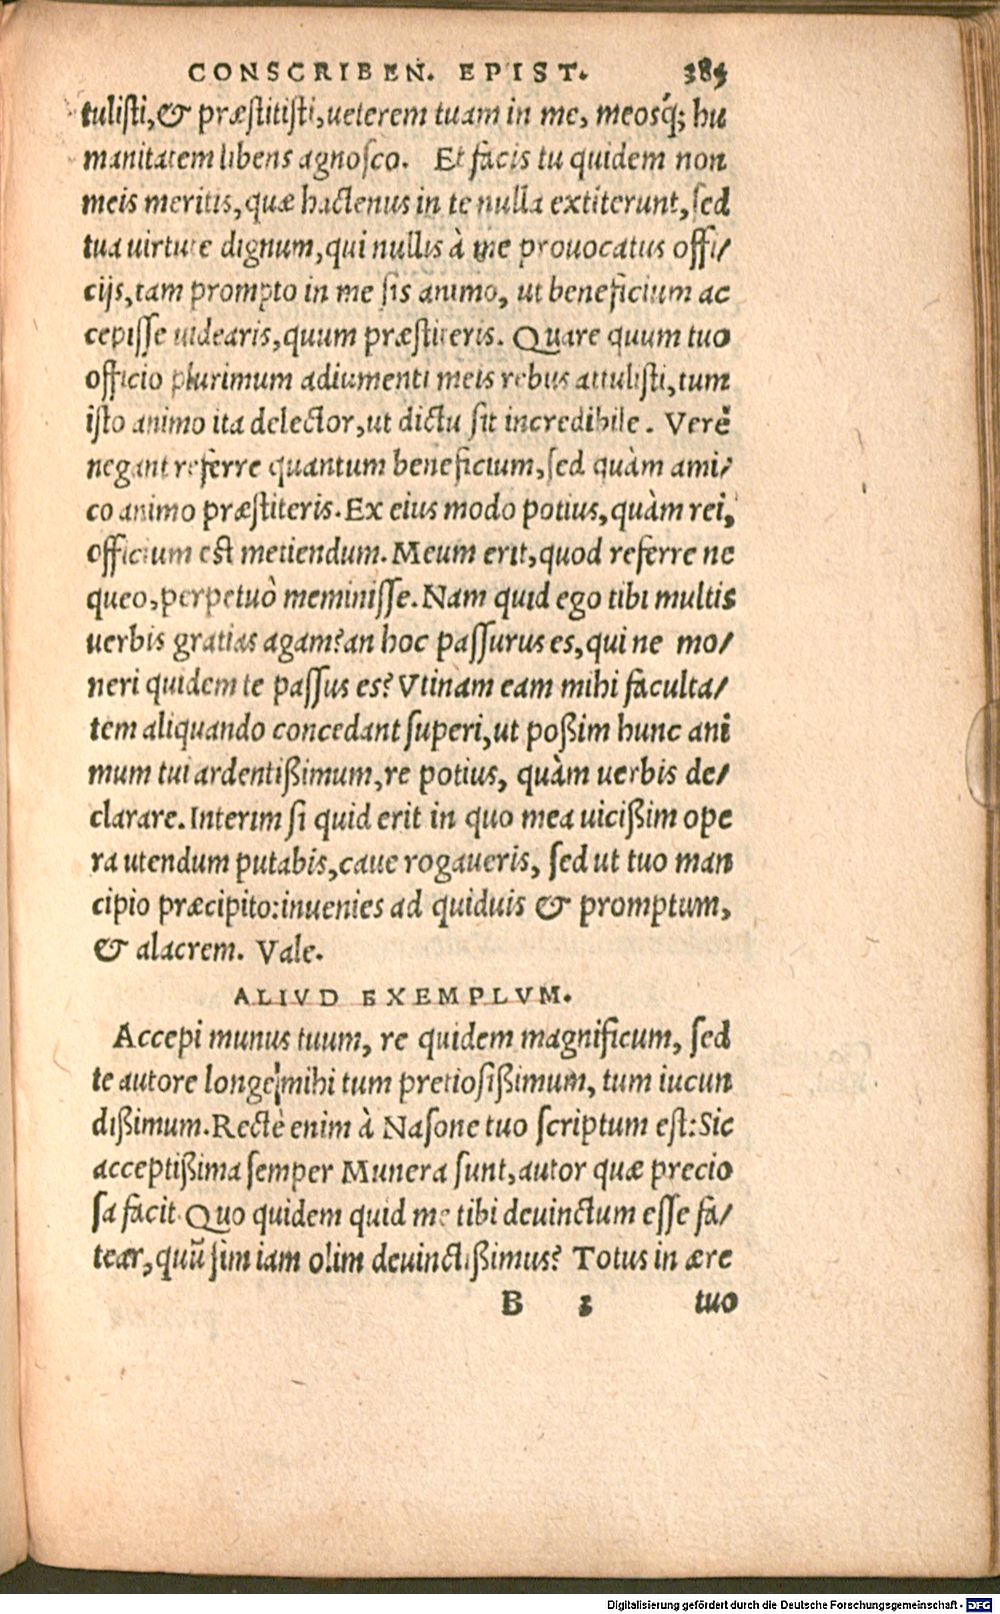 CONSCRIBEN. EPIST. 385
tuliſti,& præſtitiſti,ueterem tuam in me, meosq́; hu
manitatem libens agnoſco. Et facis tu quidem non
meis meritis,quæ hactenus in te nulla extiterunt,ſed
tua uirtute dignum,qui nullis à me prouocatus offi/
cijs,tam prompto in me ſis animo, ut beneficium ac
cepiſſe uidearis,quum præſtiteris. Quare quum tuo
officio plurimum adiumenti meis rebus attuliſti,tum
iſto animo ita delector,ut dictu ſit incredibile. Verè
negant referre quantum beneficium,ſed quàm ami/
co animo præſtiteris.Ex eius modo potius,quàm rei,
officium eſt metiendum.Meum erit,quod referre ne
queo,perpetuò meminiſſe.Nam quid ego tibi multis
uerbis gratias agam?an hoc paſſurus es,qui ne mo/
neri quidem te paſſus es? Vtinam eam mihi faculta/
tem aliquando concedant ſuperi,ut poßim hunc ani
mum tui ardentißimum,re potius, quàm uerbis de/
clarare.Interim ſi quid erit in quo mea uicißim ope
ra utendum putabis,caue rogaueris, ſed ut tuo man
cipio præcipito:inuenies ad quiduis & promptum,
& alacrem. Vale.
ALIVD EXEMPLVM.
Accepi munus tuum, re quidem magnificum, ſed
te autore longe mihi tum pretioſißimum, tum iucun
dißimum.Rectè enim à Naſone tuo ſcriptum eſt:Sic
acceptißima ſemper Munera ſunt,autor quæ precio
ſa facit.Quo quidem quid me tibi deuinctum eſſe fa/
tear,quũ ſim iam olim deuinctißimus? Totus in ære
B 3 tuo
Digitalisierung gefördert durch die Deutsche Forschungsgemeinschaft - DFG